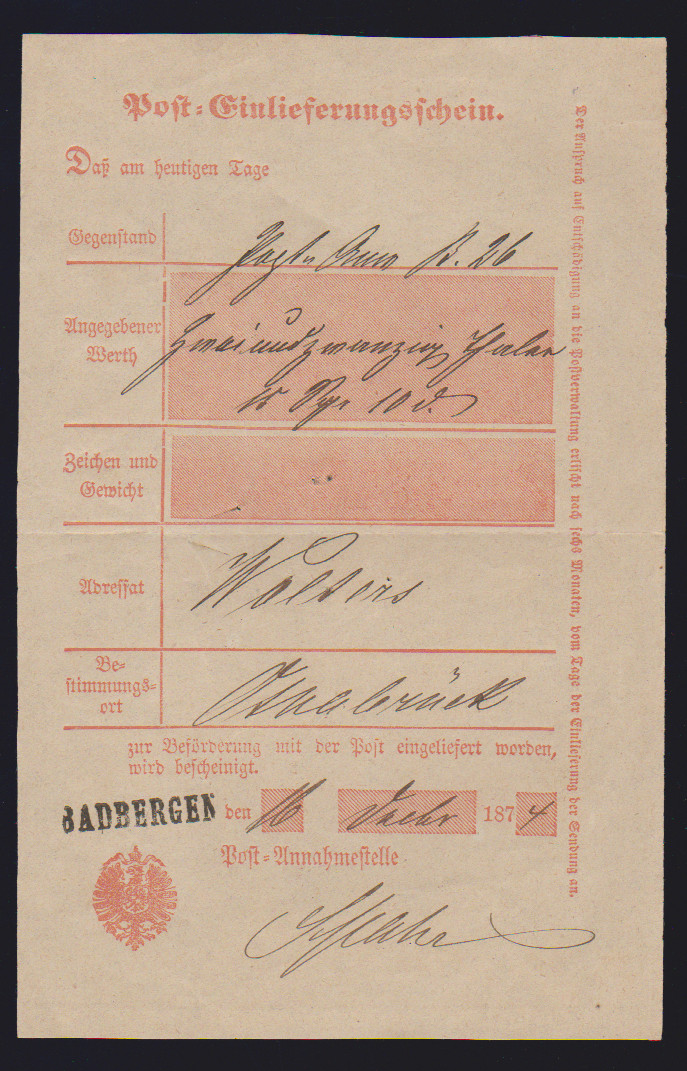 Post-Einlieferungsschein.
Daß am heutigen Tage
Gegenstand
B. 26
Angegebener
Werth
Zweiundzwanzig Thaler
10 d.
Zeichen und
Gewicht
Adressat
Wolters
Be-
stimmungs-
ort
Osnabrück
zur Beförderung mit der Post eingeliefert worden,
wird bescheinigt.
BADBERGEN den 16 Decbr 1874
Post-Annahmestelle
Der Anspruch auf Entschädigung an die Postverwaltung erlischt nach sechs Monaten, vom Tage der Einlieferung der Sendung an.